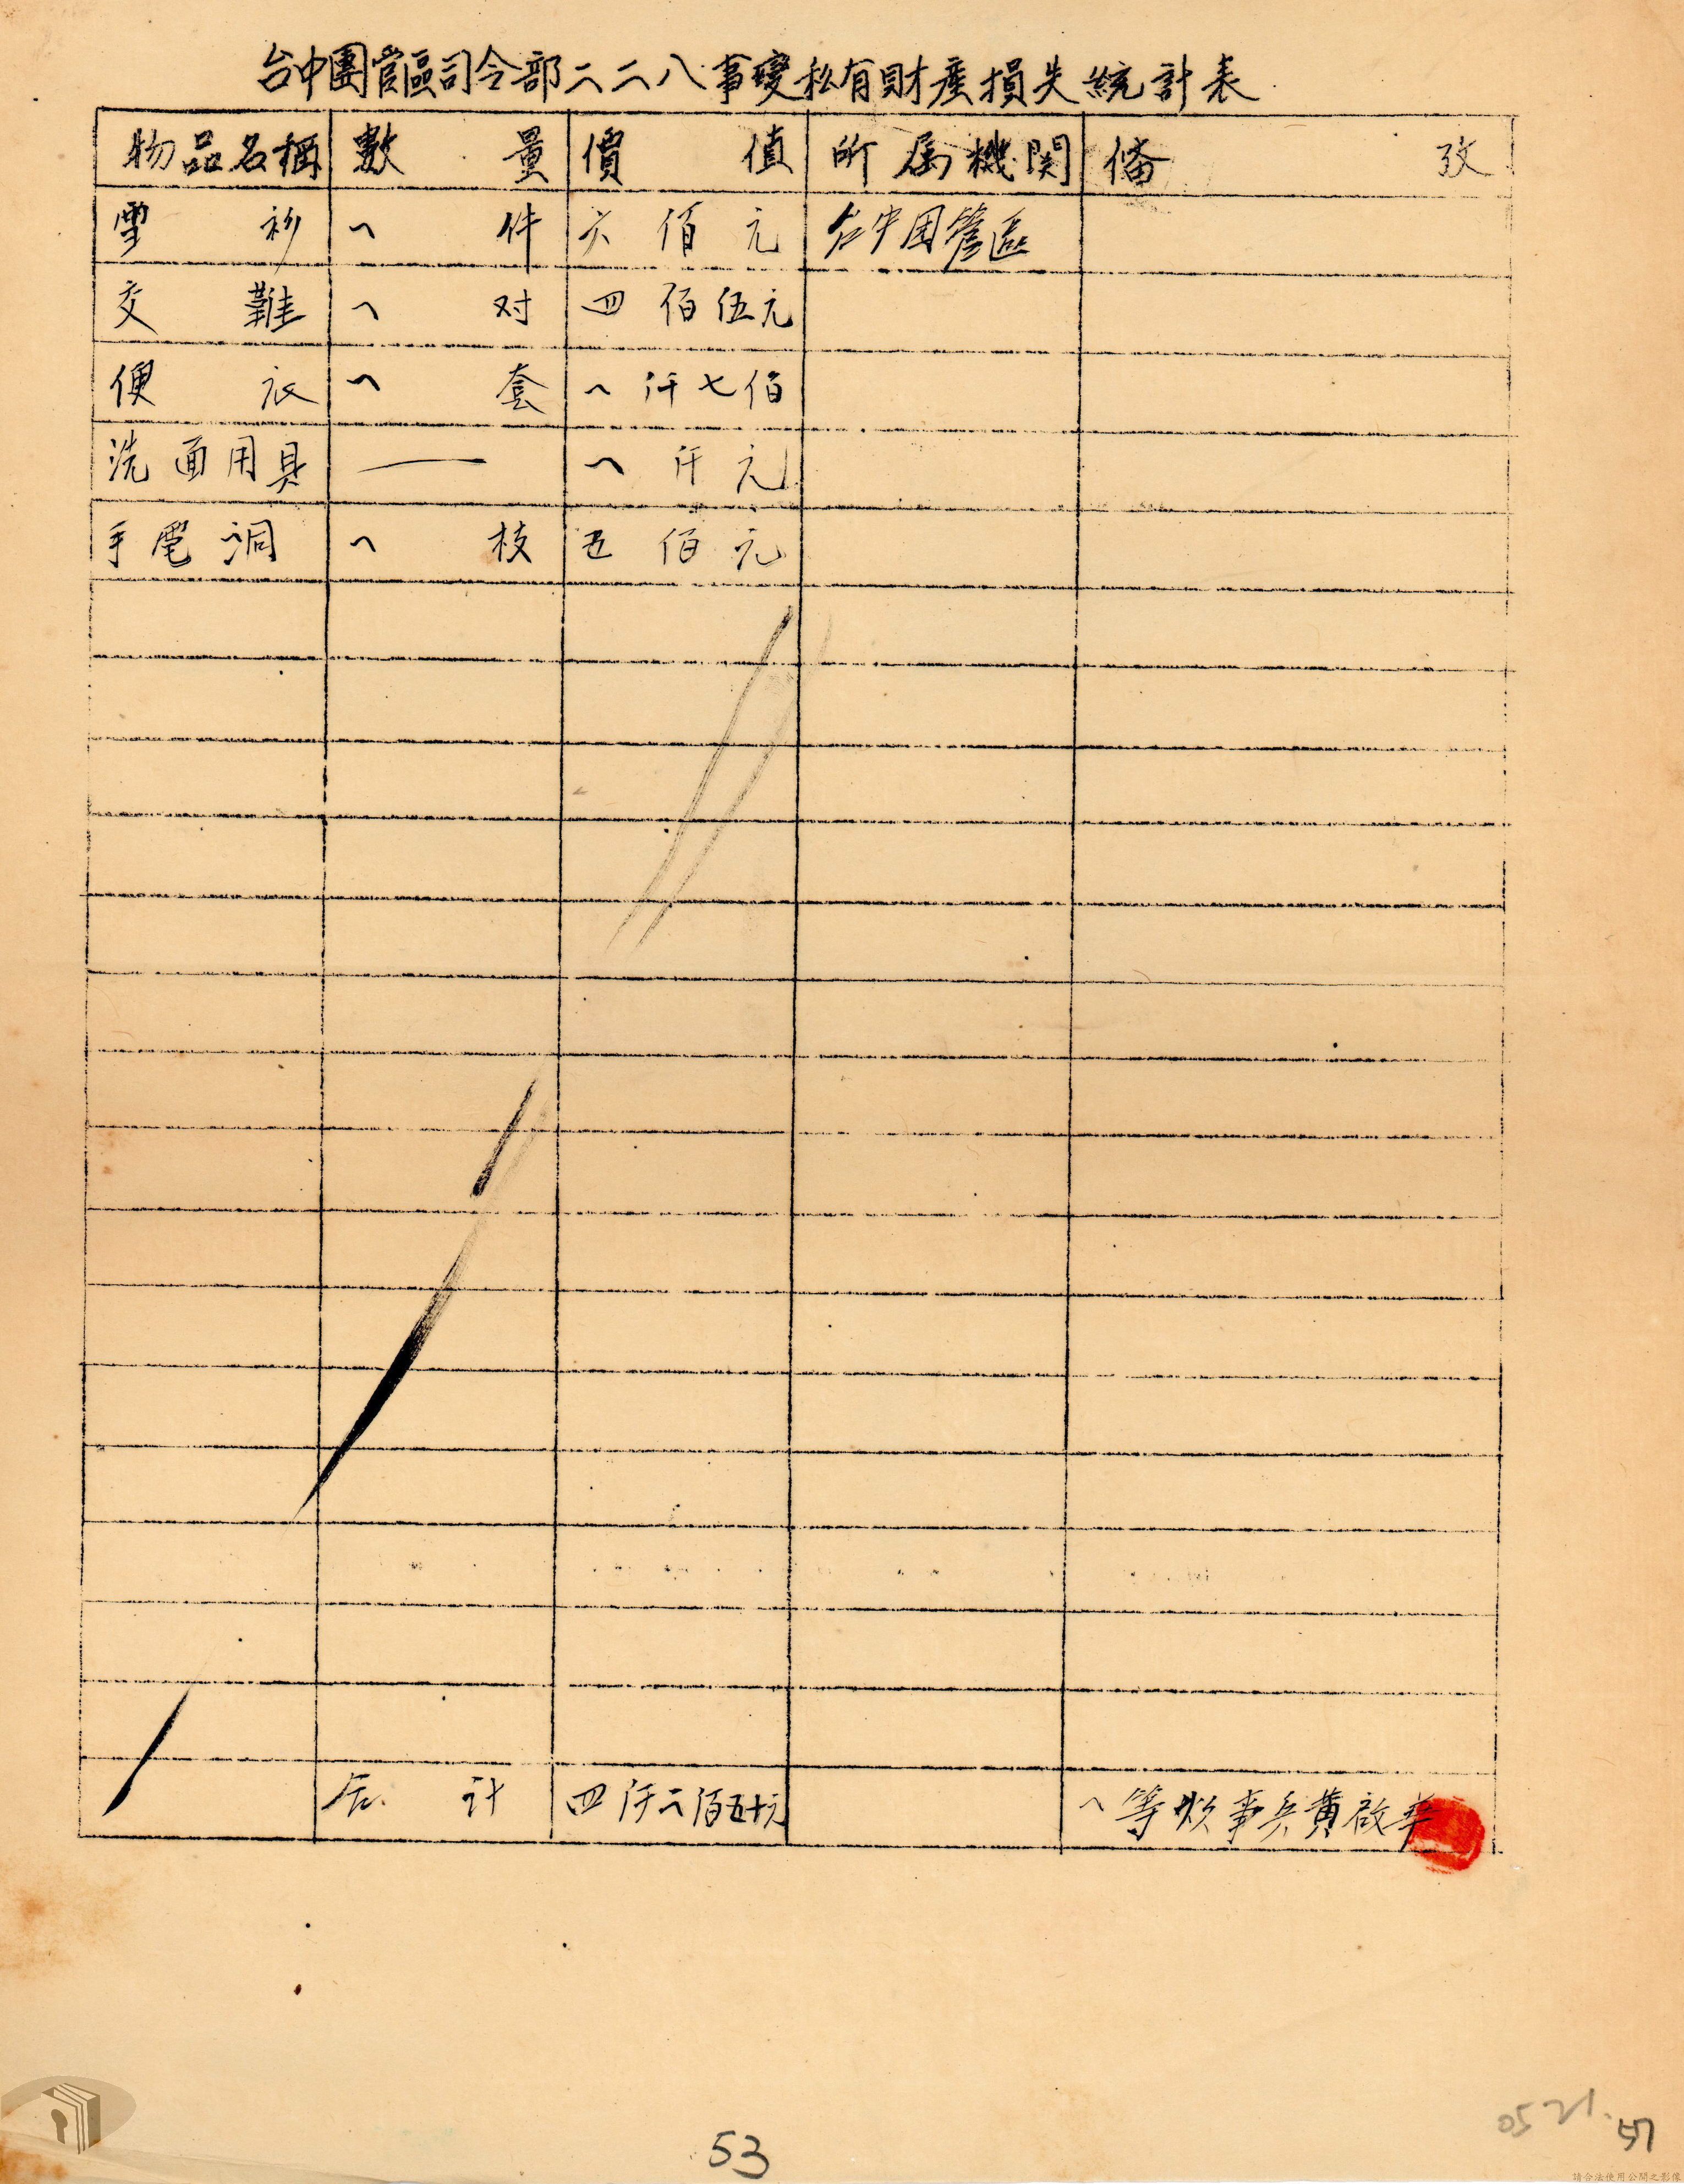 台中團管區司令部二二八事變私有財產損失統計表
物品名稱 數量 價值 所属機関 偹攷
雪衫 一件 六佰元 台中团管區
交難 一对 四佰伍元
便衣 一套 一仟七佰
洗面用具 — 一仟元
手電洞 一枝 五佰元
計 四仟二佰五十元 一等炊事兵黄啟華
53
0521
51
請合法使用公開之影像